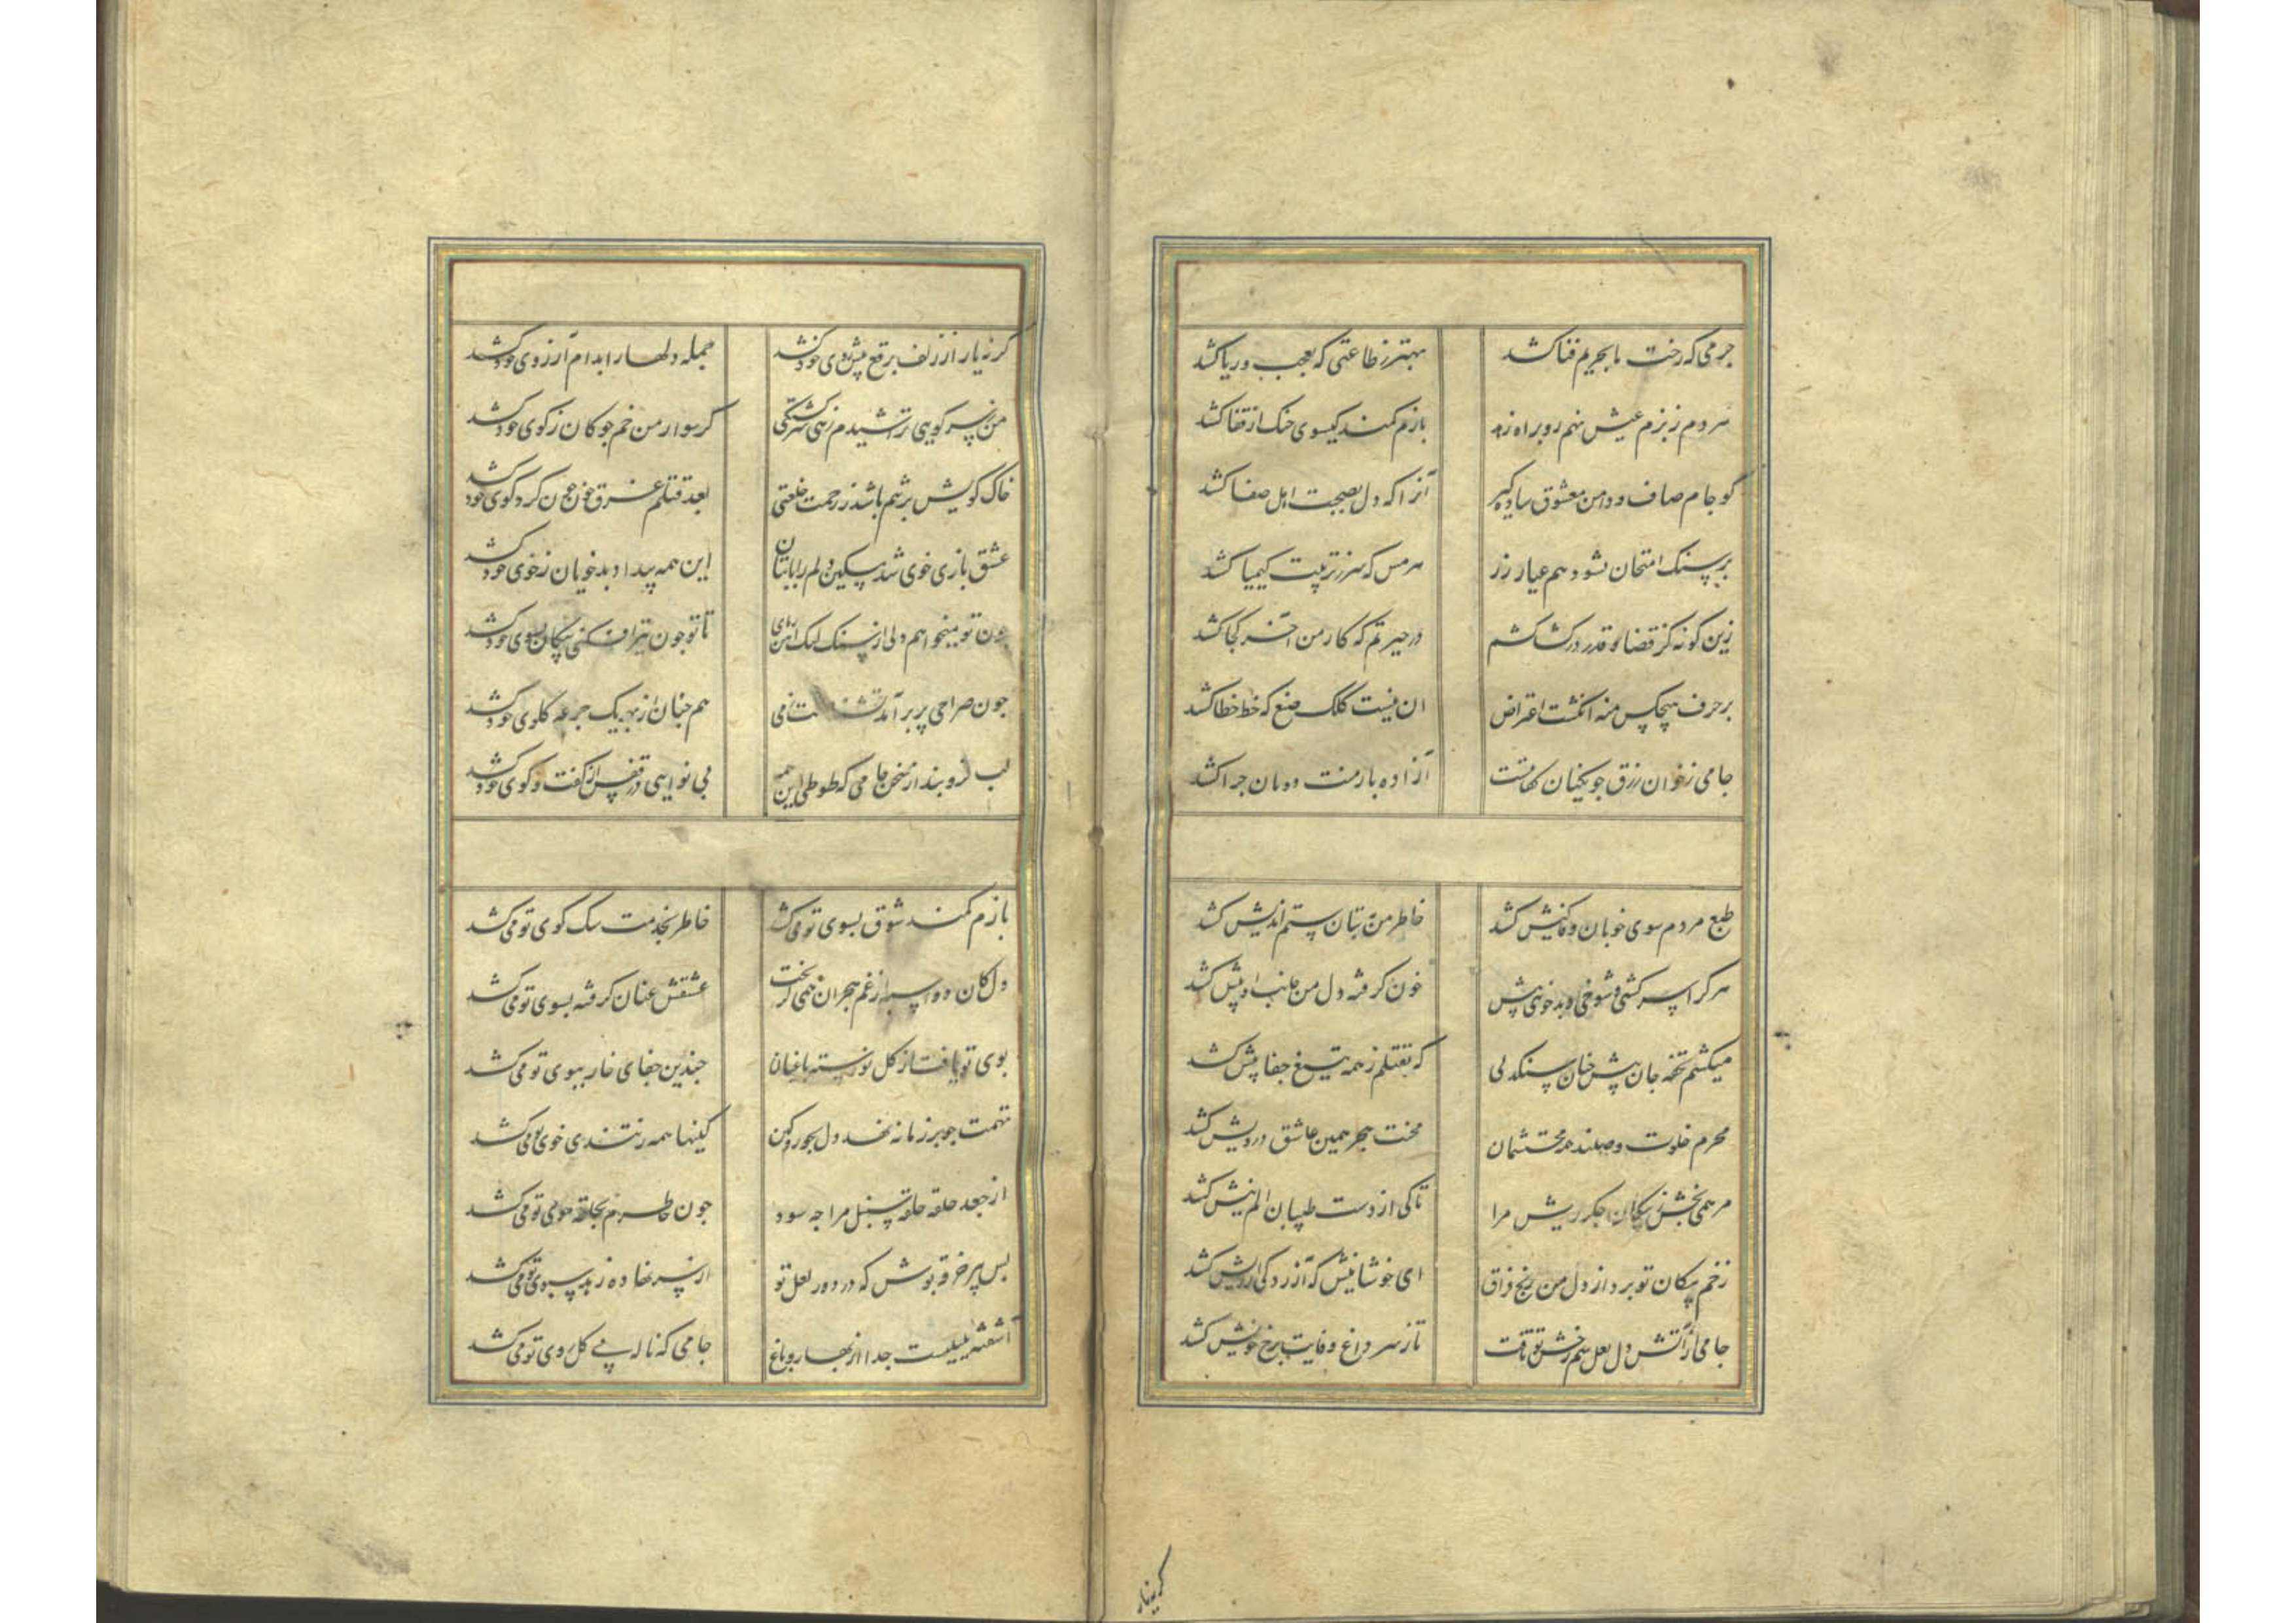 جرمی که رخت ما بحریم فنا کشد
بهتر ز طاعتی که بعجب و ریا کشد
هر دم ز بزم عیش نهم رو براه زهد
بازم کمند کیسوی چنک از قفا کشد
کو جام صاف و دامن معشوق ساده کیر
آنرا که دل بصحبت اهل صفا کشد
بر سنک امتحان نشود هم عیار زر
هر مس که سر ز تربیت کیمیا کشد
زین کونه کز قضا و قدر در کشاکشم
در حیرتم که کار من آخر کجا کشد
بر حرف هیچکس منه انکشت اعتراض
آن نیست کلک صنع که خط خطا کشد
جامی ز خوان رزق جو یکنان کفاتست
آزاده بار منت دونان جرا کشد
طبع مردم سوی خوبان وفاکیش کشد
خاطر من به بتان ستم اندیش کشد
هر کرا سرکشی و شوخی و بدخویی بیش
خون کرفته دل من جانب او بیش کشد
میکشم تحفه جان پیش جنان سنکدلی
که بقتلم ز همه تیغ جفا پیش کشد
محرم خلوت وصلند همه محتشمان
محنت هجر همین عاشق درویش کشد
مرهمی بخش ز پیکان جکر ریش مرا
تا کی از دست طبیبان الم نیش کشد
زخم پیکان تو برد از دل من رنج فراق
ای خوشا نیش که آزردکی از ریش کشد
جامی از آتش دل لعل سم رخش تو تافت
تا ز سر داغ وفایت برخ خویش کشد
کر نه یار
کر نه یار از زلف برقع پیش روی خود کشد
جمله دلها را بدام آرزوی خود کشد
من سر کویی تراشیدم زهی سرکشتکی
کر سوار من خم جوکان ز کوی خود کشد
خاک کویش بر تنم باشد ز رحمت خلعتی
بعد قتلم غرق خون جون کرد کوی خود کشد
عشق بازی خوی شد مسکین دلم را با بتان
این همه بیداد بدخویان ز خوی خود کشد
جون تو میخواهم دلی از سنک لیک آهن ربای
تا تو جون تیر افکنی پیکان بسوی خود کشد
جون صراحی پر برآمد
هم جنان از بهر یک جرعه کلوی خود کشد
لب فرو بند از سخن جامی که طوطی این همه
بی نوایی در قفس از کفت و کوی خود کشد
بازم کمند شوق بسوی تو می کشد
خاطر بخدمت سک کوی تو می کشد
دل کان دو اسبه از غم هجران همی کریخت
عشقش عنان کرفته بسوی تو می کشد
بوی تو یافت از کل نورسته باغبان
جندین جفای خار ببوی تو می کشد
تهمت جو بر زمانه نهد دل بجور و کین
کینها همه ز تندی خوی تو می کشد
از جعد حلقه حلقه سنبل مرا جه سود
جون خاطرم بحلقه موی تو می کشد
بس پیر خرقه پوش که در دور لعل تو
از سر نهاده زهد سبوی تو می کشد
آشفته بلبلیست جدا از بهار و باغ
جامی که ناله بی کل روی تو می کشد